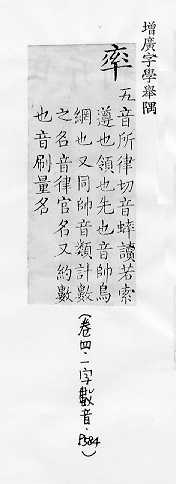 增廣字學舉隅
率
五音所律切音蟀讀若索
遵也領也先也音帥鳥
網也又同帥音類計數
之名音律官名又約數
也音刷量名
(卷四·一字數音·P584)